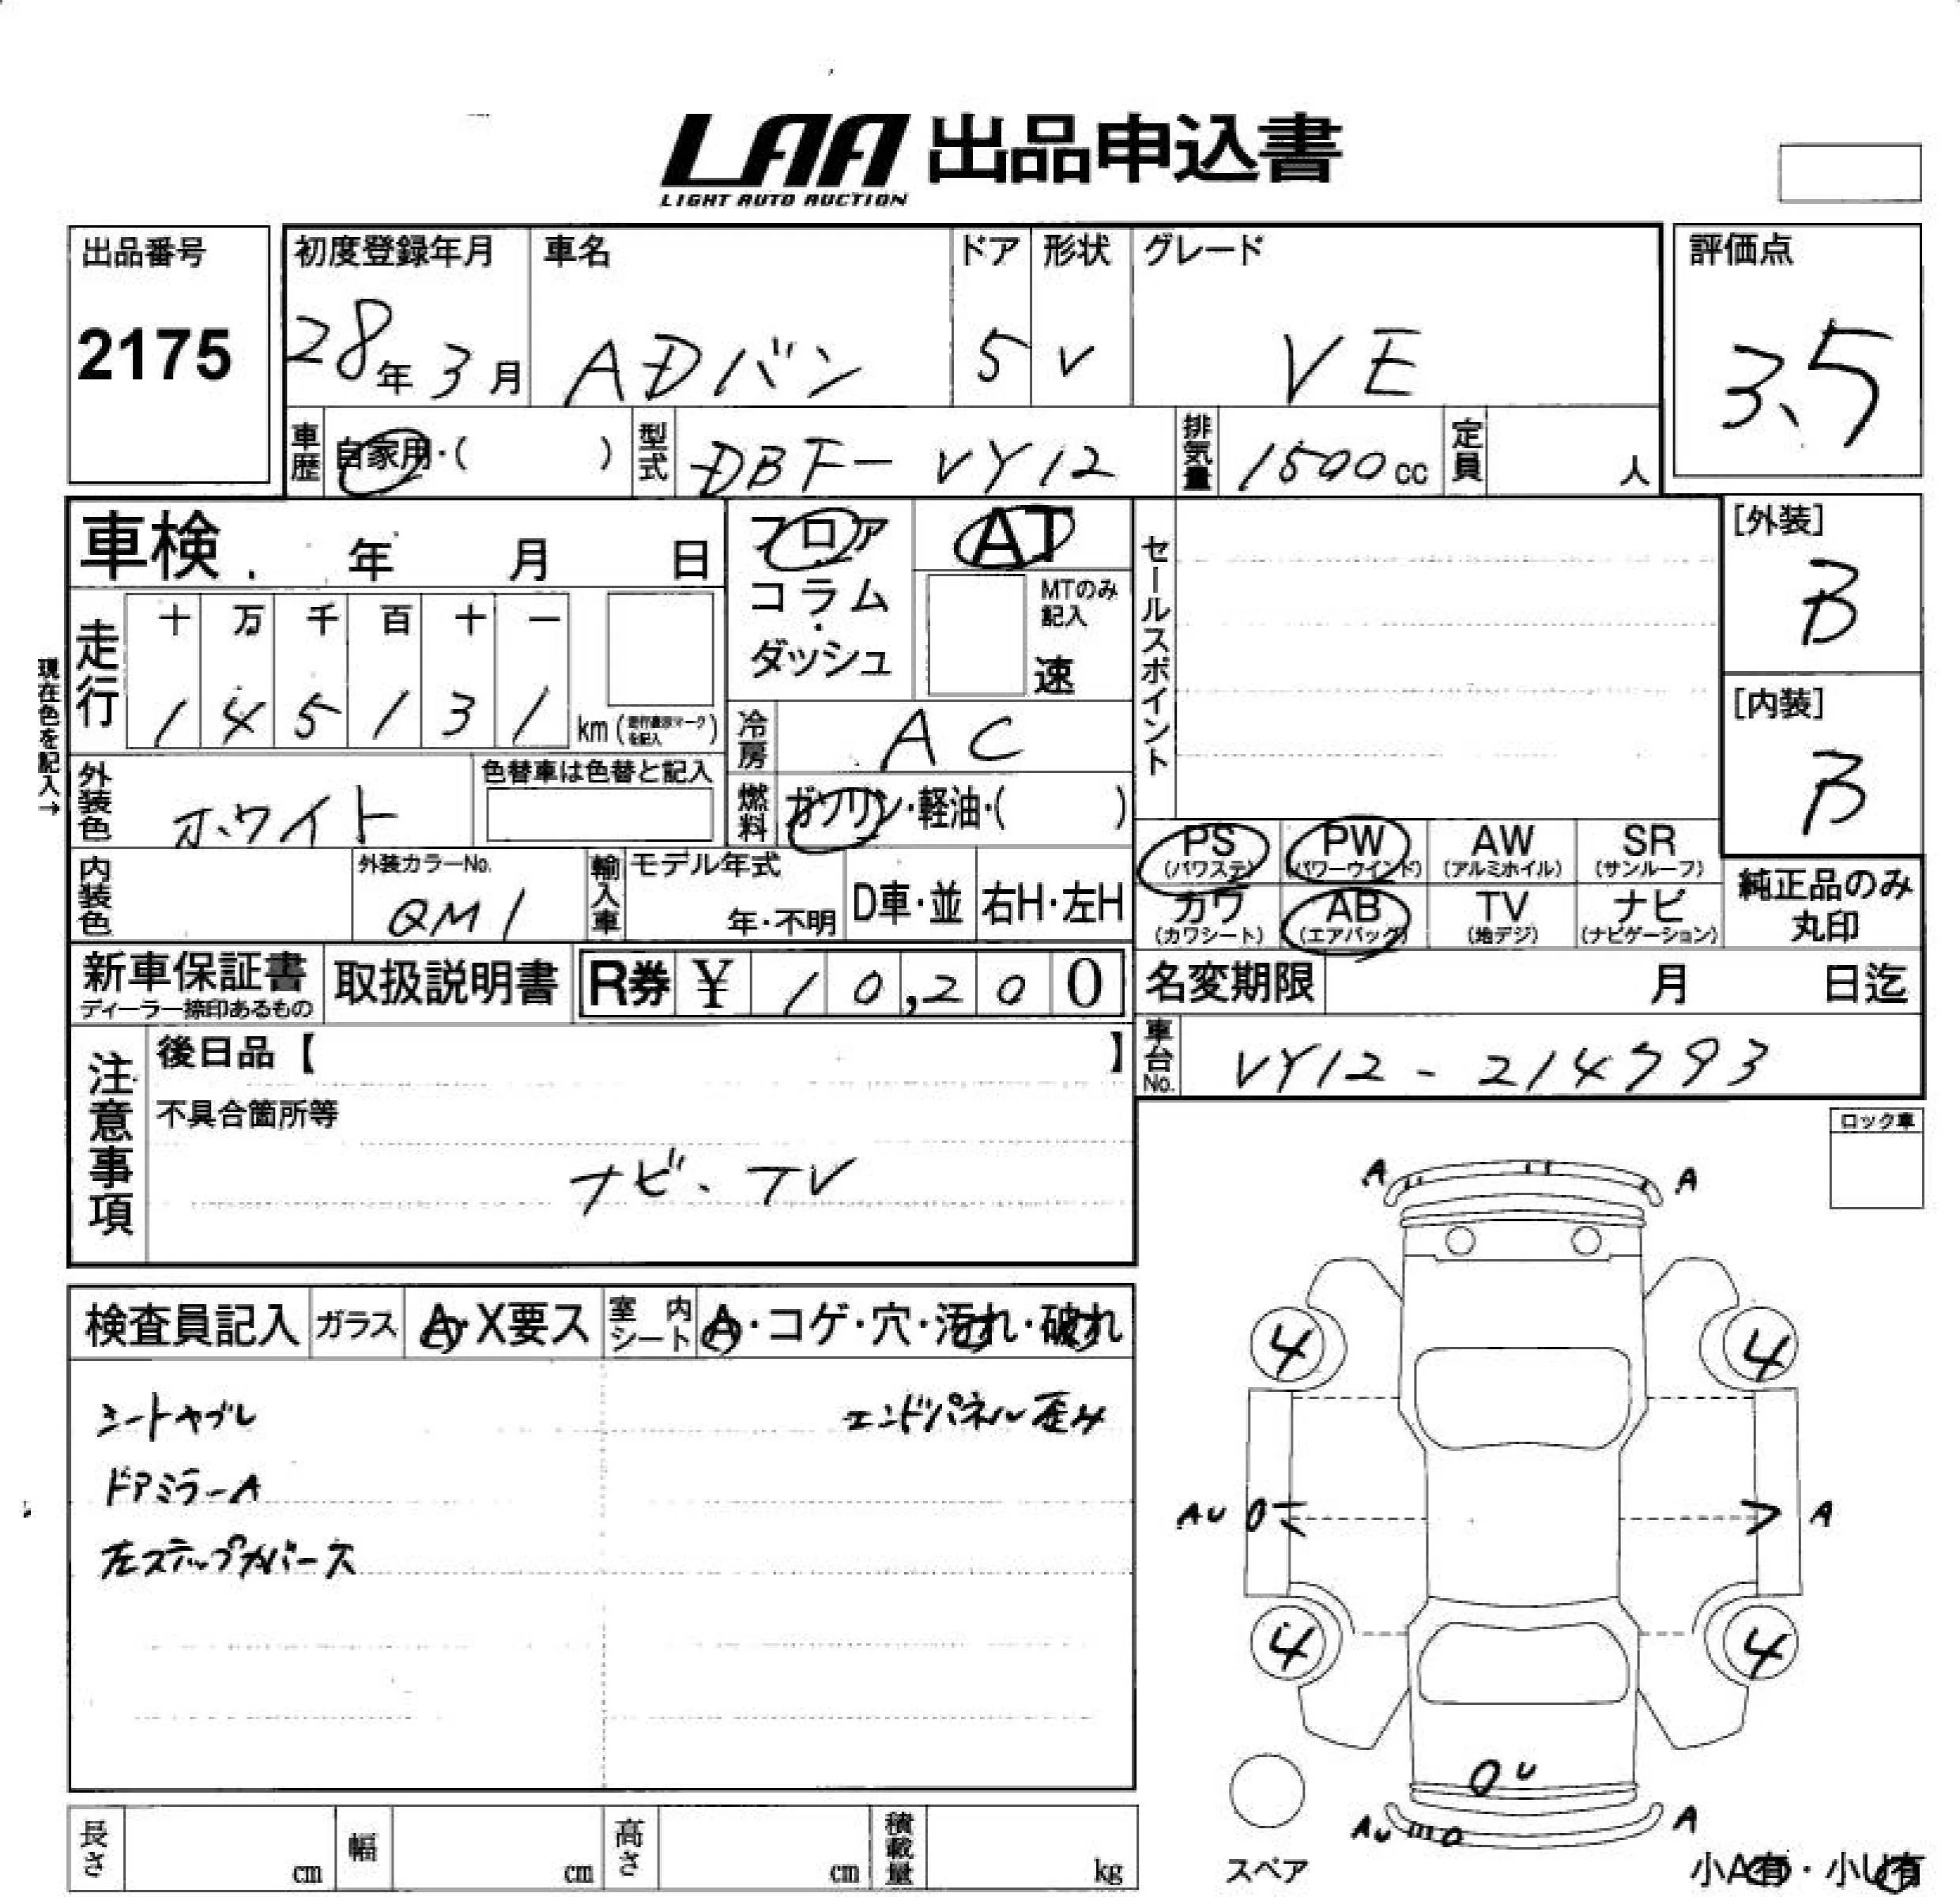 LAA 出品申込書
LIGHT AUTO AUCTION
出品番号
2175
初度登録年月
28年 3月
車名
ADバン
ドア
5
形状
V
グレード
VE
評価点
3.5
車歴 自家用・( )
型式 DBF-VY12
排気量 1500cc
定員 人
車検 年 月 日
フロア
コラム
・
ダッシュ
AT
MTのみ
記入
速
セールスポイント
[外装]
B
[内装]
B
現在色を記入→
走行
十 万 千 百 十 一
1 4 5 1 3 1 km(走行表示マークを記入)
冷房 AC
外装色 ホワイト
色替車は色替と記入
燃料 ガソリン・軽油・( )
PS
(パワステ)
PW
(パワーウインド)
AW
(アルミホイル)
SR
(サンルーフ)
カワ
(カワシート)
AB
(エアバッグ)
TV
(地デジ)
ナビ
(ナビゲーション)
純正品のみ
丸印
内装色
外装カラーNo.
QM1
輸入車
モデル年式
年・不明
D車・並
右H・左H
新車保証書
ディーラー捺印あるもの
取扱説明書
R券 ¥ 10,200
名変期限 月 日迄
車台No. VY12-214793
注意事項
後日品【 】
不具合箇所等
ナビ、TV
ロック車
検査員記入
ガラス A・X要ス
室内シート A・コゲ・穴・汚れ・破れ
シートヤブレ
エンドパネル歪み
ドアミラーA
左ステップカバー欠
A A
4 4
AU A
4 4
U
AU A
スペア
小A有・小U有
長さ cm
幅 cm
高さ cm
積載量 kg